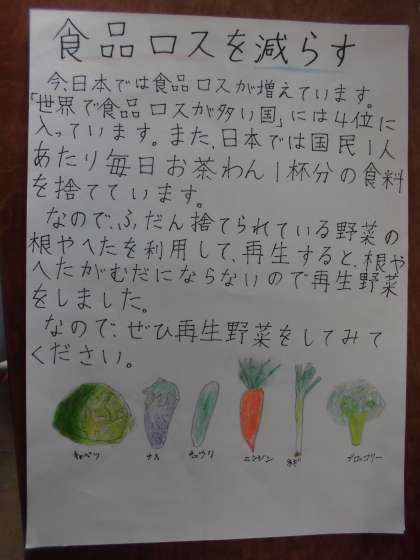 食品ロスを減らす
今、日本では食品ロスが増えています。
「世界で食品ロスが多い国」には4位に
入っています。また、日本では国民1人
あたり毎日お茶わん1杯分の食料
を捨てています。
なので、ふだん捨てられている野菜の
根やへたを利用して、再生すると、根や
へたがむだにならないので再生野菜
をしました。
なので、ぜひ再生野菜をしてみて
ください。
キャベツ ナス キュウリ ニンジン ネギ ブロッコリー